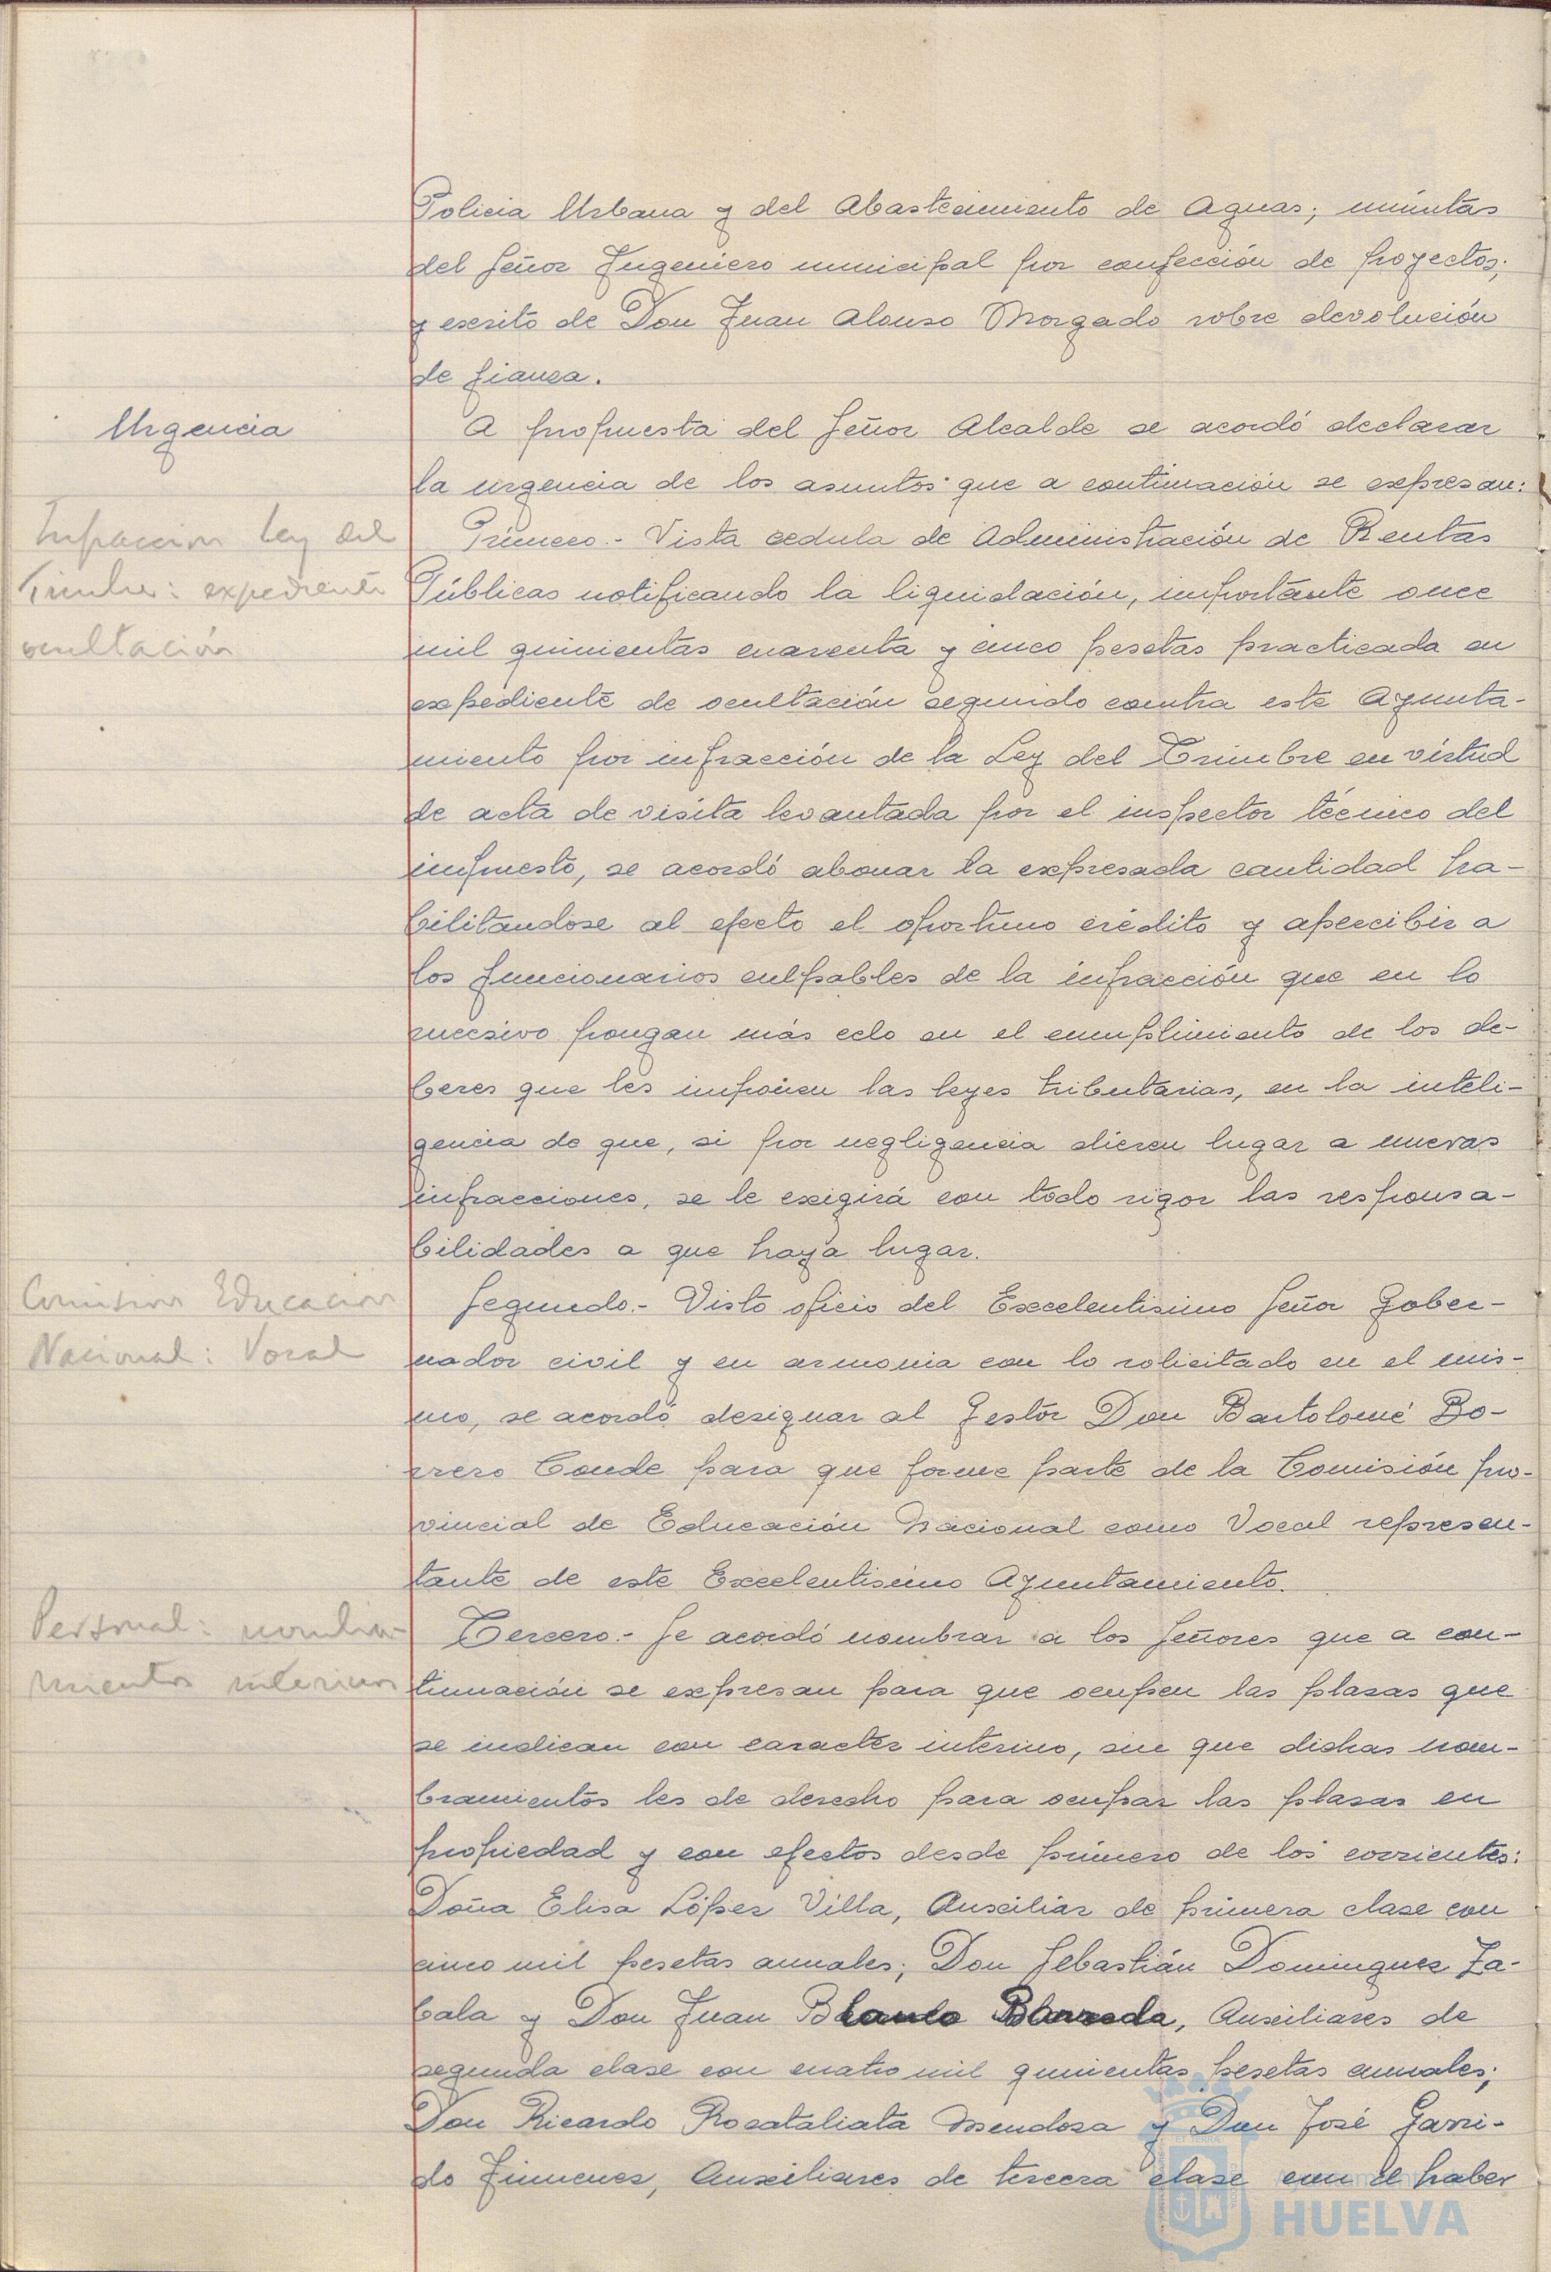 Policia Urbana y del Abastecimiento de Aguas; minutas
del Señor Ingeniero municipal por confección de proyectos;
y escrito de Don Juan Alonso Morgado sobre devolución
de fianza.
Urgencia
A propuesta del Señor Alcalde se acordó declarar
la urgencia de los asuntos que a continuación se expresan:
Infraccion Ley del
Timbre: expediente
ocultación
Primero.- Vista cedula de Administración de Rentas
Públicas notificando la liquidación, importante once
mil quinientas cuarenta y cinco pesetas practicada en
expediente de ocultación seguido contra este Ayunta-
miento por infracción de la Ley del Trimbre en virtud
de acta de visita levantada por el inspector técnico del
impuesto, se acordó abonar la expresada cantidad ha-
bilitandose al efecto el oportuno crédito y apercibir a
los funcionarios culpables de la infracción que en lo
sucesivo pongan más celo en el cumplimiento de los de-
beres que les imponen las leyes tributarias, en la inteli-
gencia de que, si por negligencia dieren lugar a nuevas
infracciones, se le exigirá con todo rigor las responsa-
bilidades a que haya lugar.
Comision Educacion
Nacional: Vocal
Segundo.- Visto oficio del Excelentisimo Señor Gober-
nador civil y en armonia con lo solicitado en el mis-
mo, se acordó designar al Gestor Don Bartolomé Bo-
rrero Conde para que forme parte de la Comisión pro-
vincial de Educación Nacional como Vocal represen-
tante de este Excelentisimo Ayuntamiento.
Personal: nombra-
mientos interinos
Tercero.- Se acordó nombrar a los Señores que a con-
tinuación se expresan para que ocupen las plazas que
se indican con caracter interino, sin que dichas nom-
bramientos les de derecho para ocupar las plazas en
propiedad y con efectos desde primero de los corrientes:
Doña Elisa López Villa, Auxiliar de primera clase con
cinco mil pesetas anuales; Don Sebastián Dominguez Za-
bala y Don Juan Blanco Barreda, Auxiliares de
segunda clase con cuatro mil quinientas pesetas anuales;
Don Ricardo Rocataliata Mendoza y Don José Garri-
do Jimenez, Auxiliares de tercera clase con el haber
Ayuntamiento
HUELVA